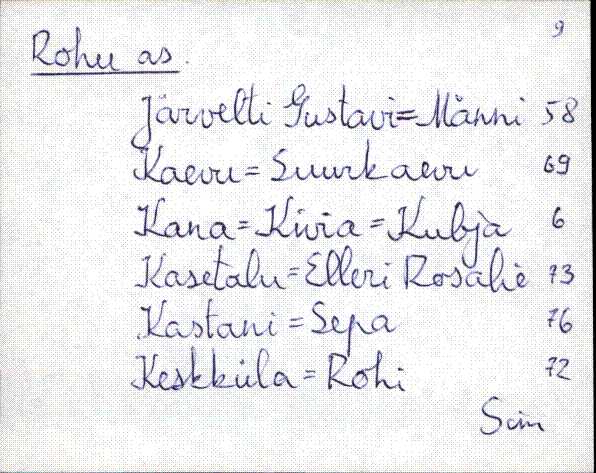 9
Rohu as.
Järvelti Gustavi=Männi 58
Kaevu=Suurkaevu 69
Kana=Kivia=Kubja 6
Kasetalu=Elleri Rosalie 73
Kastani=Sepa 76
Keskküla=Rohi 72
Sim